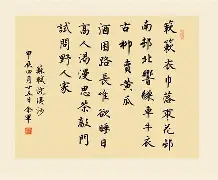 簌簌衣巾落棗花邨
南邨北響繰車牛衣
古柳賣黃瓜
酒困路長惟欲睡日
高人渴漫思茶敲門
試問野人家
蘇軾浣溪沙
四月十五日